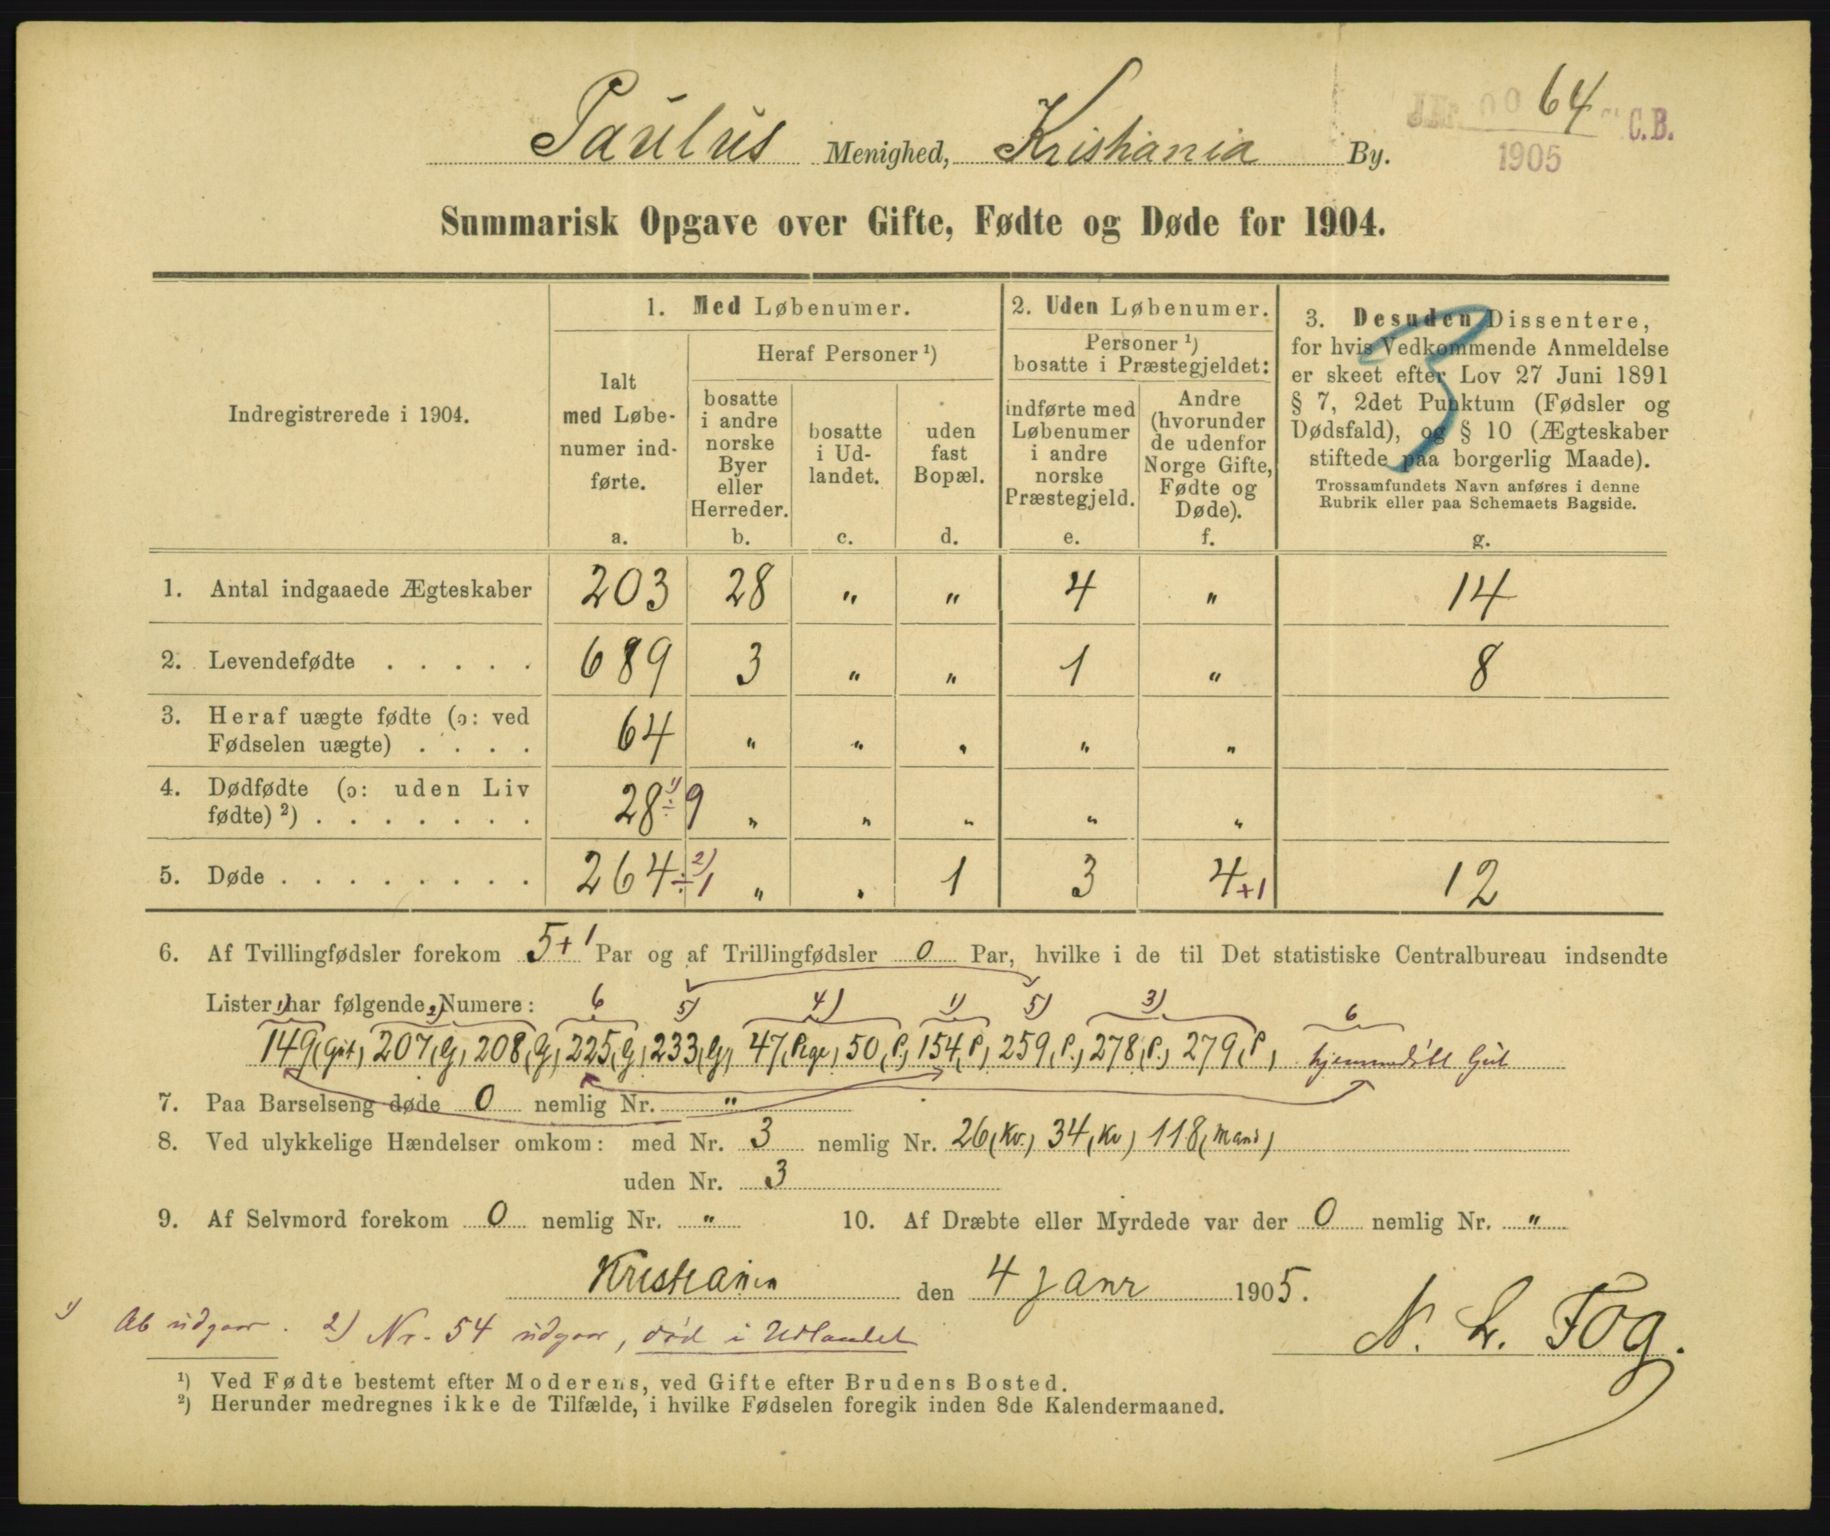 J.Nr. 0064 St. C.B.
1905
Paulus Menighed, Kristiania By.
Summarisk Opgave over Gifte, Fødte og Døde for 1904.
Indregistrerede i 1904.
1. Med Løbenumer.
Ialt
med Løbe-
numer ind-
førte.
a.
Heraf Personer ¹)
bosatte
i andre
norske
Byer
eller
Herreder.
b.
bosatte
i Ud-
landet.
c.
uden
fast
Bopæl.
d.
2. Uden Løbenumer.
Personer ¹)
bosatte i Præstegjeldet:
indførte med
Løbenumer
i andre
norske
Præstegjeld.
e.
Andre
(hvorunder
de udenfor
Norge Gifte,
Fødte og
Døde).
f.
3. Desuden Dissentere,
for hvis Vedkommende Anmeldelse
er skeet efter Lov 27 Juni 1891
§ 7, 2det Punktum (Fødsler og
Dødsfald), og § 10 (Ægteskaber
stiftede paa borgerlig Maade).
Trossamfundets Navn anføres i denne
Rubrik eller paa Schemaets Bagside.
g.
3
1. Antal indgaaede Ægteskaber 203 28 " " 4 " 14
2. Levendefødte . . . . . 689 3 " " 1 " 8
3. Heraf uægte fødte (ɔ: ved
Fødselen uægte) . . . . 64 " " " " "
4. Dødfødte (ɔ: uden Liv
fødte) ²) . . . . . . . 28 ¹) ÷ 9 " " " " "
5. Døde . . . . . . . . . 264 ²) ÷ 1 " " 1 3 4 +1 12
6. Af Tvillingfødsler forekom 5+1 Par og af Trillingfødsler 0 Par, hvilke i de til Det statistiske Centralbureau indsendte
Lister har følgende Numere:
1) 2) 6 5) 4) 1) 5) 3) 6
149 (Gut) 207 (G) 208 (G) 225 (G) 233 (G) 47 (Pige) 50 (P.) 154 (P) 259 (P.) 278 (P.) 279 (P) hjemmedøbt Gut
7. Paa Barselseng døde 0 nemlig Nr. "
8. Ved ulykkelige Hændelser omkom: med Nr. 3 nemlig Nr. 26 (Kv.) 34 (Kv) 118 (Mand)
uden Nr. 3
9. Af Selvmord forekom 0 nemlig Nr. " 10. Af Dræbte eller Myrdede var der 0 nemlig Nr. "
Kristiania den 4 Janr 1905.
N. L. Fog.
1) Ab udgaar. 2) Nr. 54 udgaar, død i Udlandet
¹) Ved Fødte bestemt efter Moderens, ved Gifte efter Brudens Bosted.
²) Herunder medregnes ikke de Tilfælde, i hvilke Fødselen foregik inden 8de Kalendermaaned.